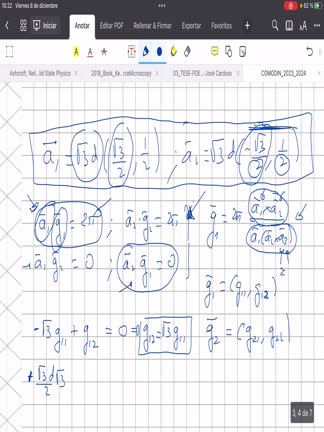 10:22 Viernes 8 de diciembre
62 %
Iniciar Anotar Editar PDF Rellenar & Firmar Exportar Favoritos
Ashcroft, Neil...lid State Physics 2018_Book_Ke...rceMicroscopy 03_TESE-PDE...-José Cardoso COMODIN_2023_2024
a⃗₁ = √3 d (√3/2, 1/2) ; a⃗₂ = √3 d (-√3/2, 1/2)
a⃗₁ g⃗₁ = 2π ; a⃗₂ g⃗₂ = 2π
a⃗₁ g⃗₂ = 0 ; a⃗₂ g⃗₁ = 0
g⃗₁ = (g₁₁, g₁₂)
-√3 g₁₁ + g₁₂ = 0 ⇒ g₁₂ = √3 g₁₁ g⃗₂ = (g₂₁, g₂₂)
+ √3 d √3 / 2
3, 4 de 7